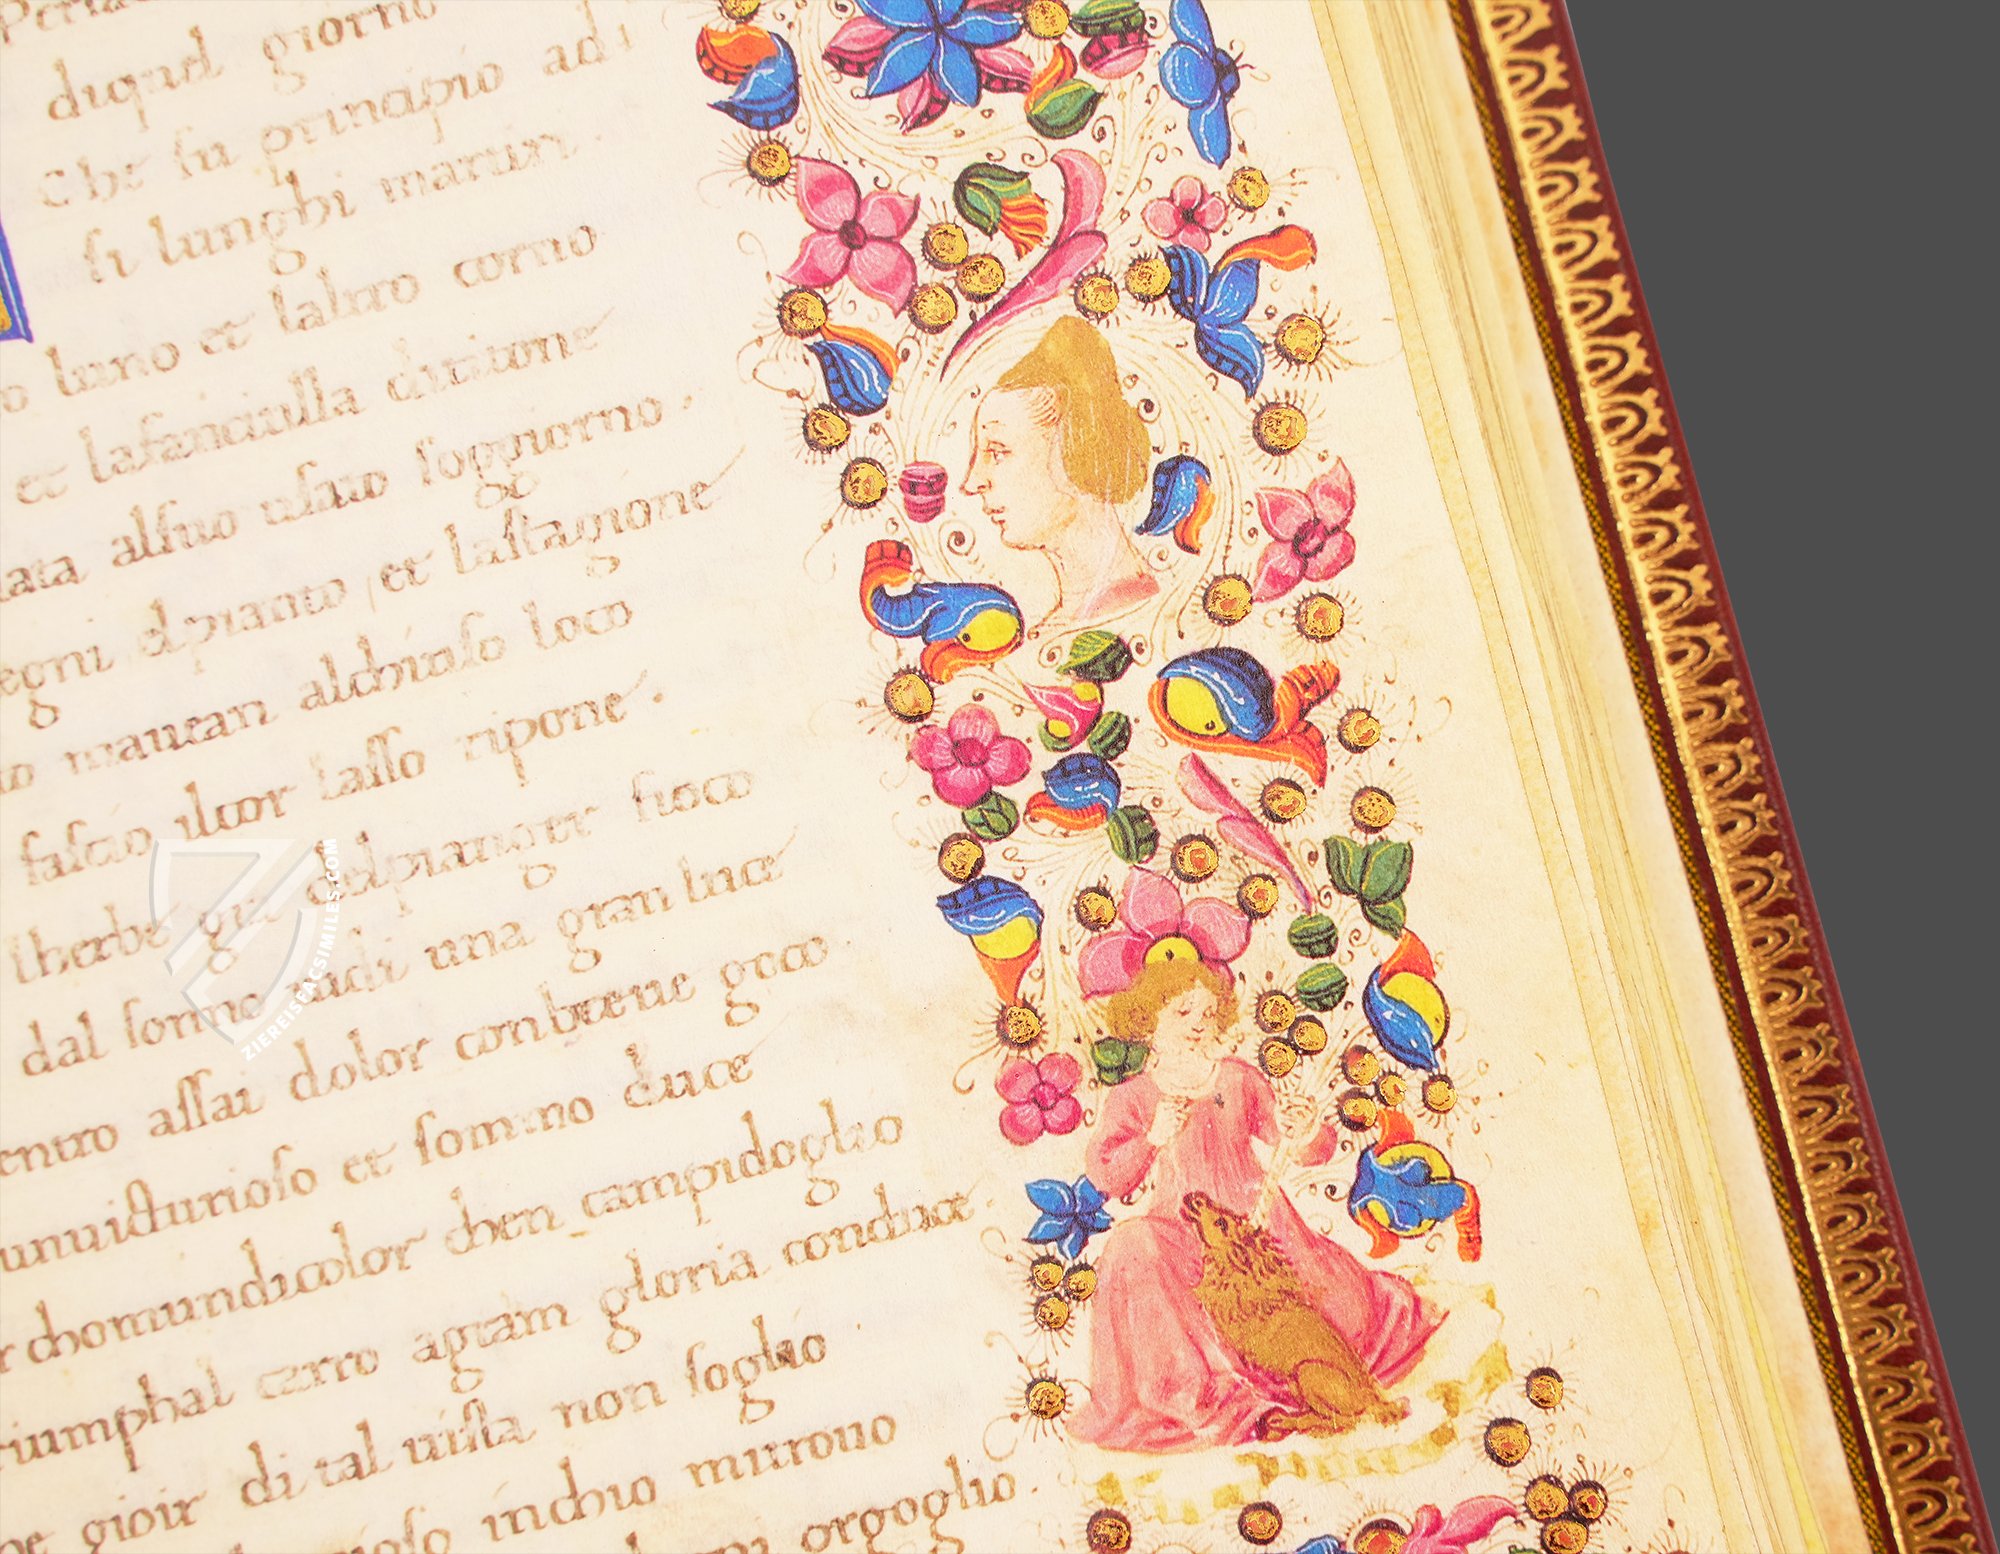 diquel giorno
Che fu principio ad
si lunghi martiri.
luno et laltro corno
et lafanciulla dititone
alsuo usato soggiorno.
elpianto, et lastagione
mauean alchiuso loco
fascio ilcor lasso ripone.
lherbe gia delpianger fioco
dal sonno uidi una gran luce
entro assai dolor conbreue gioco.
unuictorioso et sommo duce
chomundicolor chen campidoglio
triumphal carro agram gloria conduce.
gioir di tal uista non soglio
inchio mutrouo
orgoglio.
ZIEREISFACSIMILES.COM